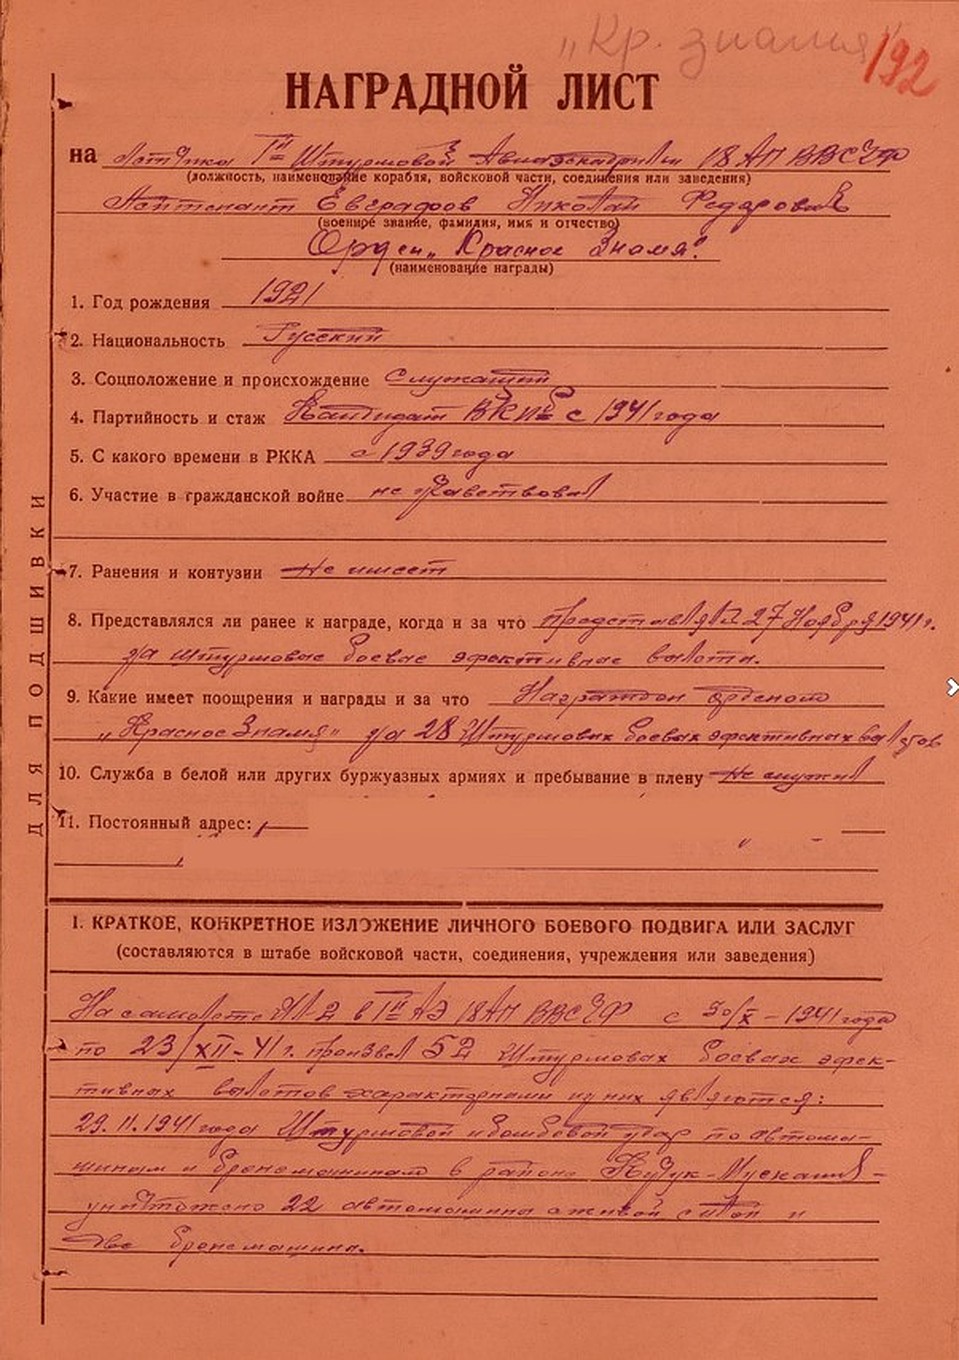 „Кр. знамя"
192
НАГРАДНОЙ ЛИСТ
на Летчика 1й Штурмовой Авиаэскадрилии 18 АП ВВС ЧФ
(должность, наименование корабля, войсковой части, соединения или заведения)
Лейтенант Евграфов Николай Федорович
(военное звание, фамилия, имя и отчество)
Орден „Красное Знамя".
(наименование награды)
1. Год рождения 1921
2. Национальность Русский
3. Соцположение и происхождение Служащий
4. Партийность и стаж Кандидат ВКПб с 1941 года
5. С какого времени в РККА с 1939 года
6. Участие в гражданской войне не участвовал
7. Ранения и контузии Не имеет
8. Представлялся ли ранее к награде, когда и за что представлялся 27 Ноября 1941 г.
за штурмовые боевые эфективные вылеты.
9. Какие имеет поощрения и награды и за что Награжден орденом
„Красное Знамя" за 28 Штурмовых боевых эфективных вылетов
10. Служба в белой или других буржуазных армиях и пребывание в плену Не служил
11. Постоянный адрес:
ДЛЯ ПОДШИВКИ
I. КРАТКОЕ, КОНКРЕТНОЕ ИЗЛОЖЕНИЕ ЛИЧНОГО БОЕВОГО ПОДВИГА ИЛИ ЗАСЛУГ
(составляются в штабе войсковой части, соединения, учреждения или заведения)
На самолете ИЛ-2 в 1й АЭ 18 АП ВВС ЧФ с 30/X-1941 года
по 23/XII-41 г. произвел 52 Штурмовых боевых эфек-
тивных вылетов характерными из них являются:
29.11.1941 года Штурмовой и бомбовой удар по автома-
шинам и бронемашинам в районе Кучук-Мускомия-
уничтожено 22 автомашины с живой силой и
две бронемашины.